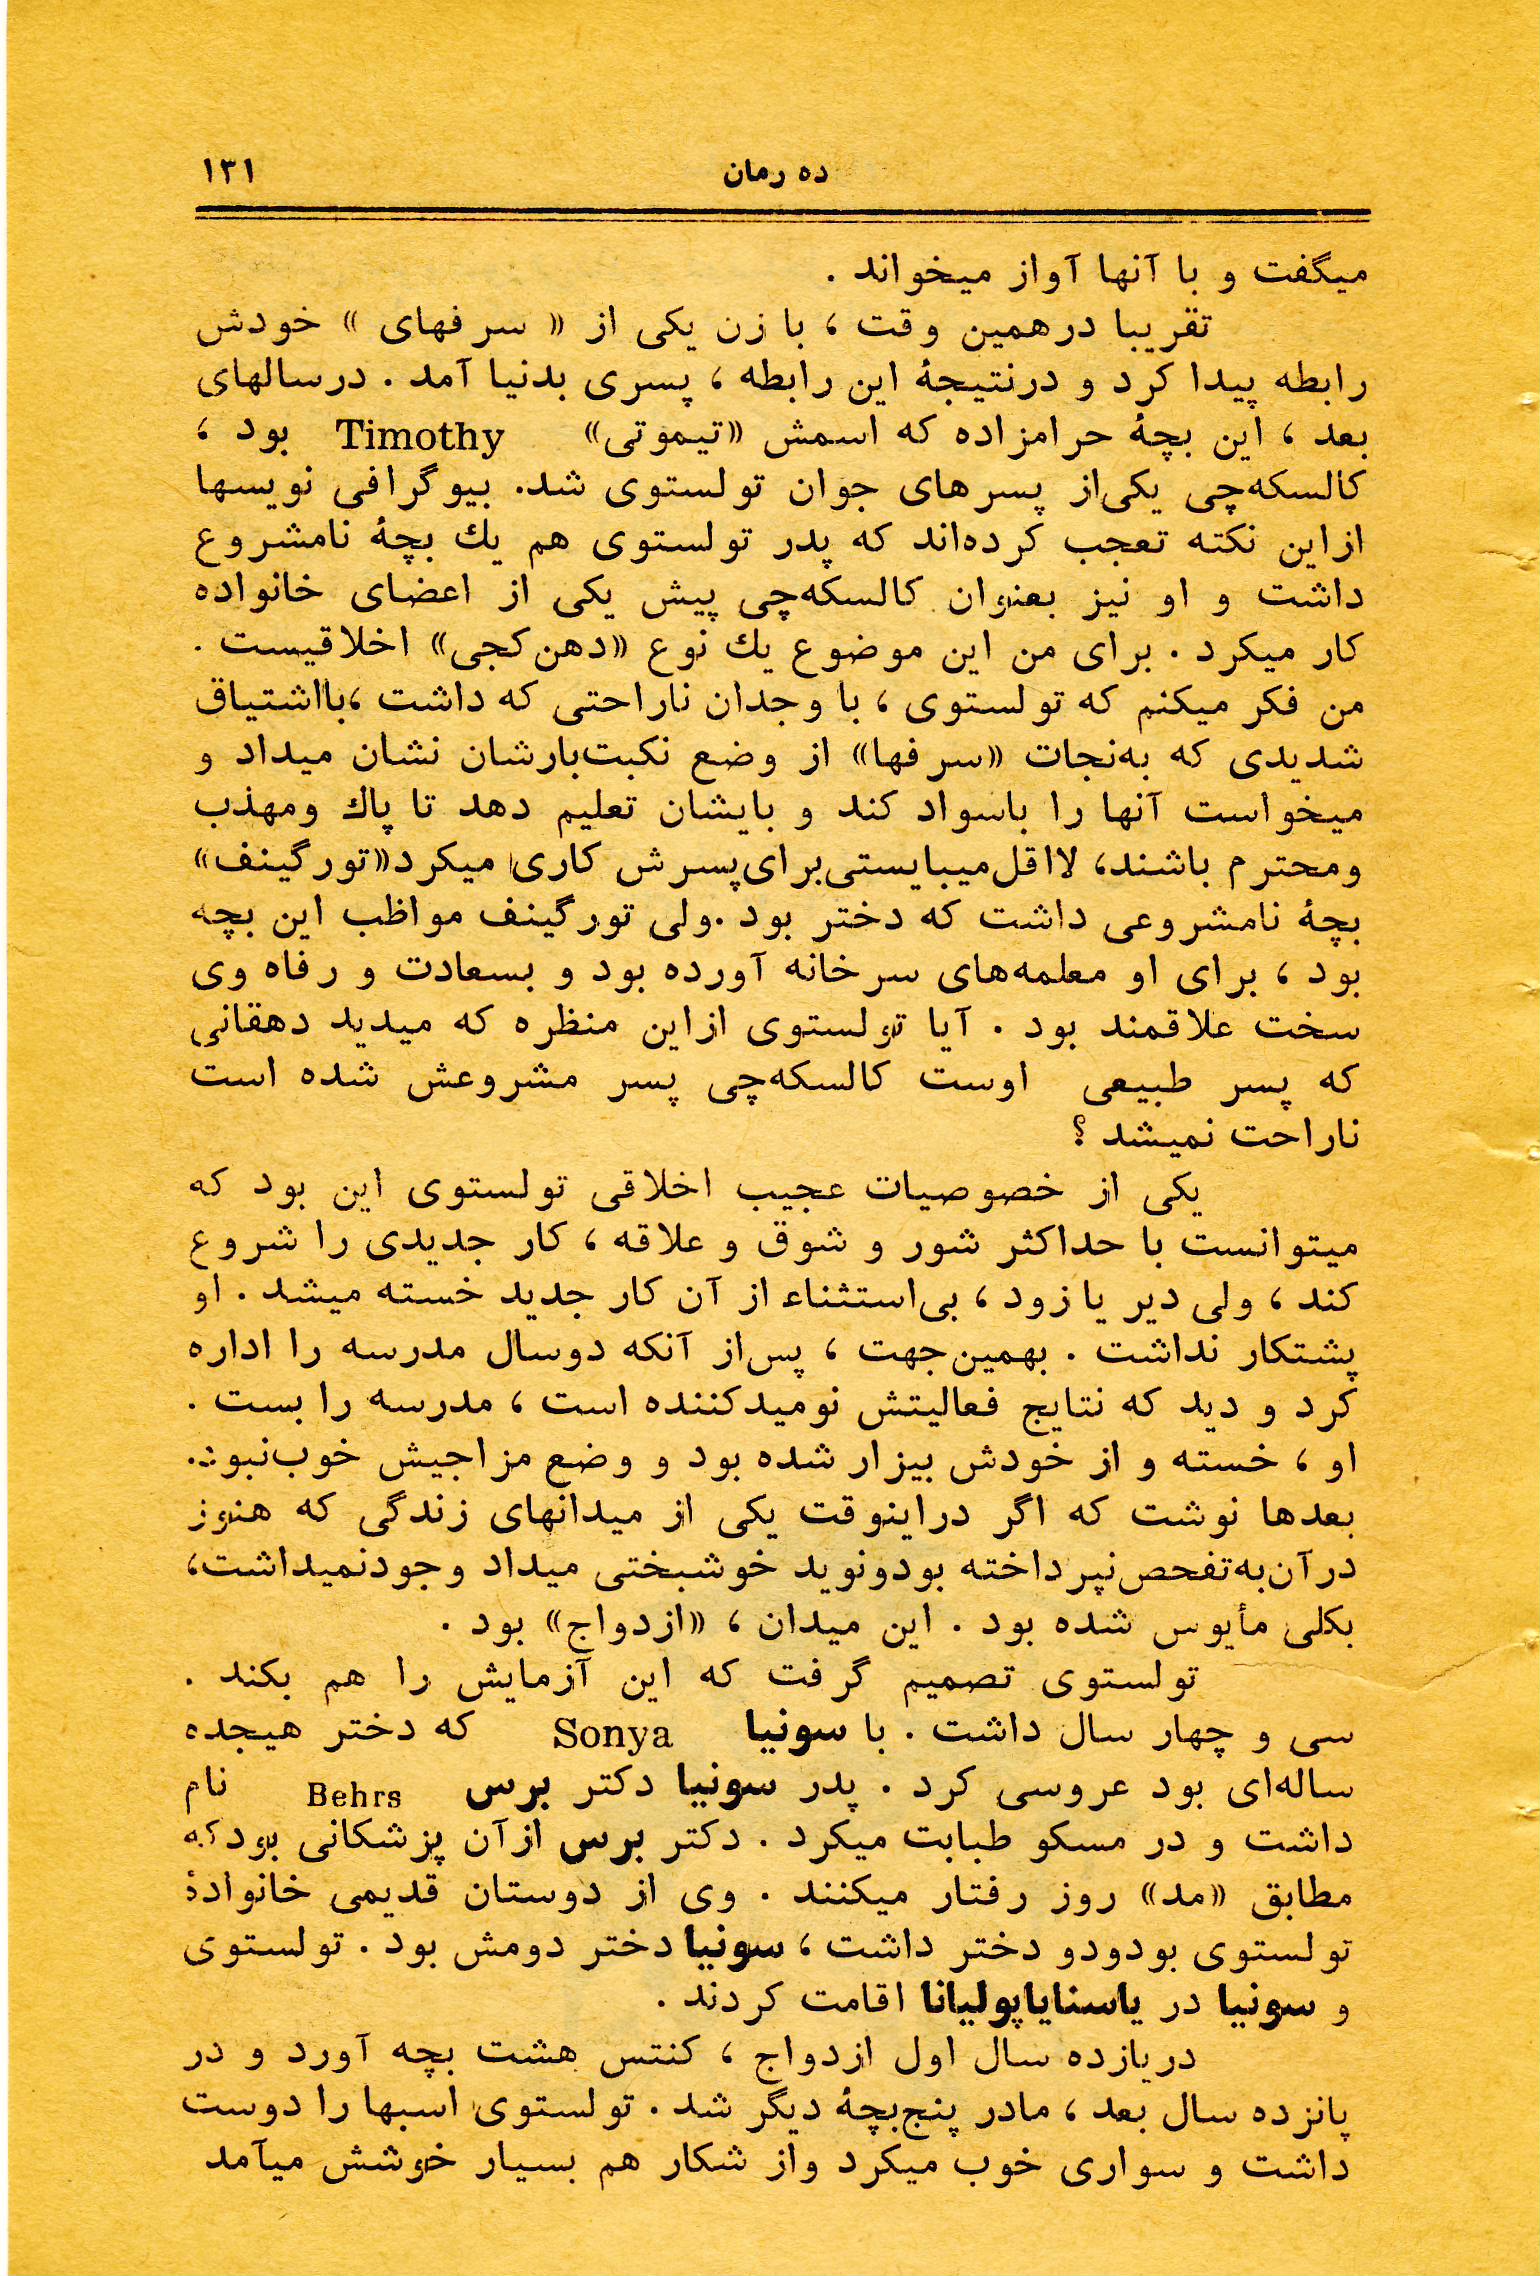 ده رمان ۱۳۱
میگفت و با آنها آواز میخواند .
تقریبا درهمین وقت ، با زن یکی از « سرفهای » خودش
رابطه پیدا کرد و درنتیجهٔ این رابطه ، پسری بدنیا آمد . درسالهای
بعد ، این بچهٔ حرامزاده که اسمش «تیموتی» Timothy بود ،
کالسکه‌چی یکی‌از پسرهای جوان تولستوی شد. بیوگرافی نویسها
ازاین نکته تعجب کرده‌اند که پدر تولستوی هم یك بچهٔ نامشروع
داشت و او نیز بعنوان کالسکه‌چی پیش یکی از اعضای خانواده
کار میکرد . برای من این موضوع یك نوع «دهن‌کجی» اخلاقیست .
من فکر میکنم که تولستوی ، با وجدان ناراحتی که داشت ،بااشتیاق
شدیدی که به‌نجات «سرفها» از وضع نکبت‌بارشان نشان میداد و
میخواست آنها را باسواد کند و بایشان تعلیم دهد تا پاك ومهذب
ومحترم باشند، لااقل‌میبایستی‌برای‌پسرش کاری میکرد«تورگینف»
بچهٔ نامشروعی داشت که دختر بود .ولی تورگینف مواظب این بچه
بود ، برای او معلمه‌های سرخانه آورده بود و بسعادت و رفاه وی
سخت علاقمند بود . آیا تولستوی ازاین منظره که میدید دهقانی
که پسر طبیعی اوست کالسکه‌چی پسر مشروعش شده است
ناراحت نمیشد ؟
یکی از خصوصیات عجیب اخلاقی تولستوی این بود که
میتوانست با حداکثر شور و شوق و علاقه ، کار جدیدی را شروع
کند ، ولی دیر یا زود ، بی‌استثناء از آن کار جدید خسته میشد . او
پشتکار نداشت . بهمین‌جهت ، پس‌از آنکه دوسال مدرسه را اداره
کرد و دید که نتایج فعالیتش نومیدکننده است ، مدرسه را بست .
او ، خسته و از خودش بیزار شده بود و وضع مزاجیش خوب‌نبود.
بعدها نوشت که اگر دراینوقت یکی از میدانهای زندگی که هنوز
درآن‌به‌تفحص‌نپرداخته بودونوید خوشبختی میداد وجودنمیداشت،
بکلی مأیوس شده بود . این میدان ، «ازدواج» بود .
تولستوی تصمیم گرفت که این آزمایش را هم بکند .
سی و چهار سال داشت . با سونیا Sonya که دختر هیجده
ساله‌ای بود عروسی کرد . پدر سونیا دکتر برس Behrs نام
داشت و در مسکو طبابت میکرد . دکتر برس ازآن پزشکانی بودکه
مطابق «مد» روز رفتار میکنند . وی از دوستان قدیمی خانوادهٔ
تولستوی بودودو دختر داشت ، سونیا دختر دومش بود . تولستوی
و سونیا در یاسنایاپولیانا اقامت کردند .
دریازده سال اول ازدواج ، کنتس هشت بچه آورد و در
پانزده سال بعد ، مادر پنج‌بچهٔ دیگر شد . تولستوی اسبها را دوست
داشت و سواری خوب میکرد واز شکار هم بسیار خوشش میآمد